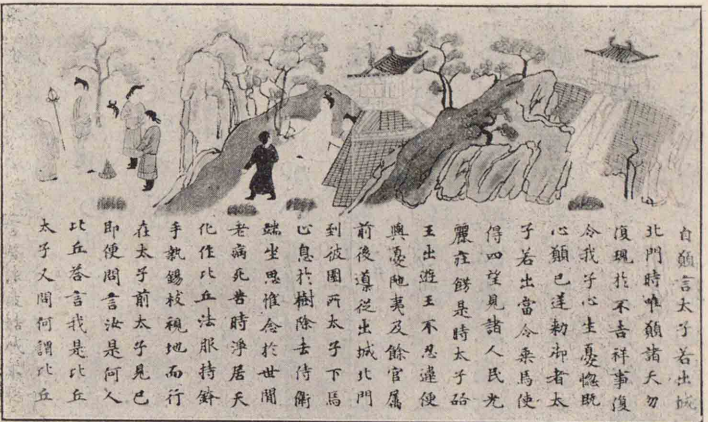 自願言太子若出城
北門時唯願諸天勿
復現於不吉祥事復
令我子心生憂惱既
心願已遂勅御者太
子若出當令乘馬使
得四望見諸人民光
麗莊餝是時太子啓
王出遊王不忍違便
與憂陁夷及餘官屬
前後導從出城北門
到彼園所太子下馬
止息於樹除去侍衛
端坐思惟念於世間
老病死苦時淨居天
化作比丘法服持鉢
手執錫杖視地而行
在太子前太子見已
即便問言汝是何人
比丘答言我是比丘
太子又問何謂比丘